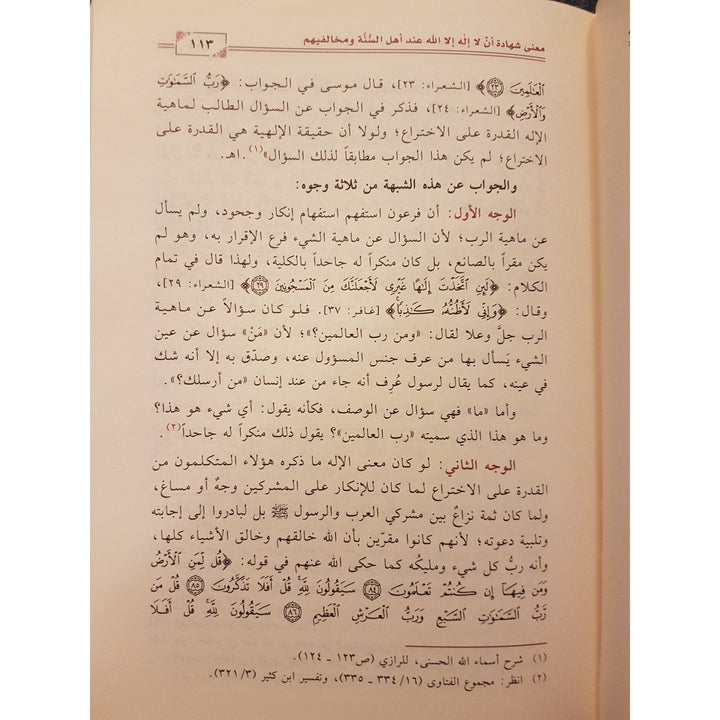 معنى شهادة أنْ لا إله إلا الله عند أهل السُّنَّة ومخالفيهم
١١٣
ٱلۡعَٰلَمِينَ ٢٣﴾ [الشعراء: ٢٣]، قال موسى في الجواب: ﴿رَبُّ ٱلسَّمَٰوَٰتِ
وَٱلۡأَرۡضِ﴾ [الشعراء: ٢٤]، فذكر في الجواب عن السؤال الطالب لماهية
الإله القدرة على الاختراع؛ ولولا أن حقيقة الإلهية هي القدرة على
الاختراع؛ لم يكن هذا الجواب مطابقاً لذلك السؤال»(١). اهـ.
والجواب عن هذه الشبهة من ثلاثة وجوه:
الوجه الأول: أن فرعون استفهم استفهام إنكار وجحود، ولم يسأل
عن ماهية الرب؛ لأن السؤال عن ماهية الشيء فرع الإقرار به، وهو لم
يكن مقراً بالصانع، بل كان منكراً له جاحداً بالكلية، ولهذا قال في تمام
الكلام: ﴿لَئِنِ ٱتَّخَذۡتَ إِلَٰهًا غَيۡرِي لَأَجۡعَلَنَّكَ مِنَ ٱلۡمَسۡجُونِينَ ٢٩﴾ [الشعراء: ٢٩]،
وقال: ﴿وَإِنِّي لَأَظُنُّهُۥ كَٰذِبٗاۚ﴾ [غافر: ٣٧]. فلو كان سؤالاً عن ماهية
الرب جلَّ وعلا لقال: «ومن رب العالمين؟»؛ لأن «مَنْ» سؤال عن عين
الشيء يَسأل بها من عرف جنس المسؤول عنه، وصدّق به إلا أنه شك
في عينه، كما يقال لرسول عُرِف أنه جاء من عند إنسان «من أرسلك؟».
وأما «ما» فهي سؤال عن الوصف، فكأنه يقول: أي شيء هو هذا؟
وما هو هذا الذي سميته «رب العالمين»؟ يقول ذلك منكراً له جاحداً(٢).
الوجه الثاني: لو كان معنى الإله ما ذكره هؤلاء المتكلمون من
القدرة على الاختراع لما كان للإنكار على المشركين وجهٌ أو مساغ،
ولما كان ثمة نزاعٌ بين مشركي العرب والرسول ﷺ بل لبادروا إلى إجابته
وتلبية دعوته؛ لأنهم كانوا مقرّين بأن الله خالقهم وخالق الأشياء كلها،
وأنه ربُّ كل شيء ومليكُه كما حكى الله عنهم في قوله: ﴿قُل لِّمَنِ ٱلۡأَرۡضُ
وَمَن فِيهَآ إِن كُنتُمۡ تَعۡلَمُونَ ٨٤ سَيَقُولُونَ لِلَّهِۚ قُلۡ أَفَلَا تَذَكَّرُونَ ٨٥ قُلۡ مَن
رَّبُّ ٱلسَّمَٰوَٰتِ ٱلسَّبۡعِ وَرَبُّ ٱلۡعَرۡشِ ٱلۡعَظِيمِ ٨٦ سَيَقُولُونَ لِلَّهِۚ قُلۡ أَفَلَا
(١) شرح أسماء الله الحسنى، للرازي (ص١٢٣ ـ ١٢٤).
(٢) انظر: مجموع الفتاوى (١٦/ ٣٣٤ ـ ٣٣٥)، وتفسير ابن كثير (٣/ ٣٢١).